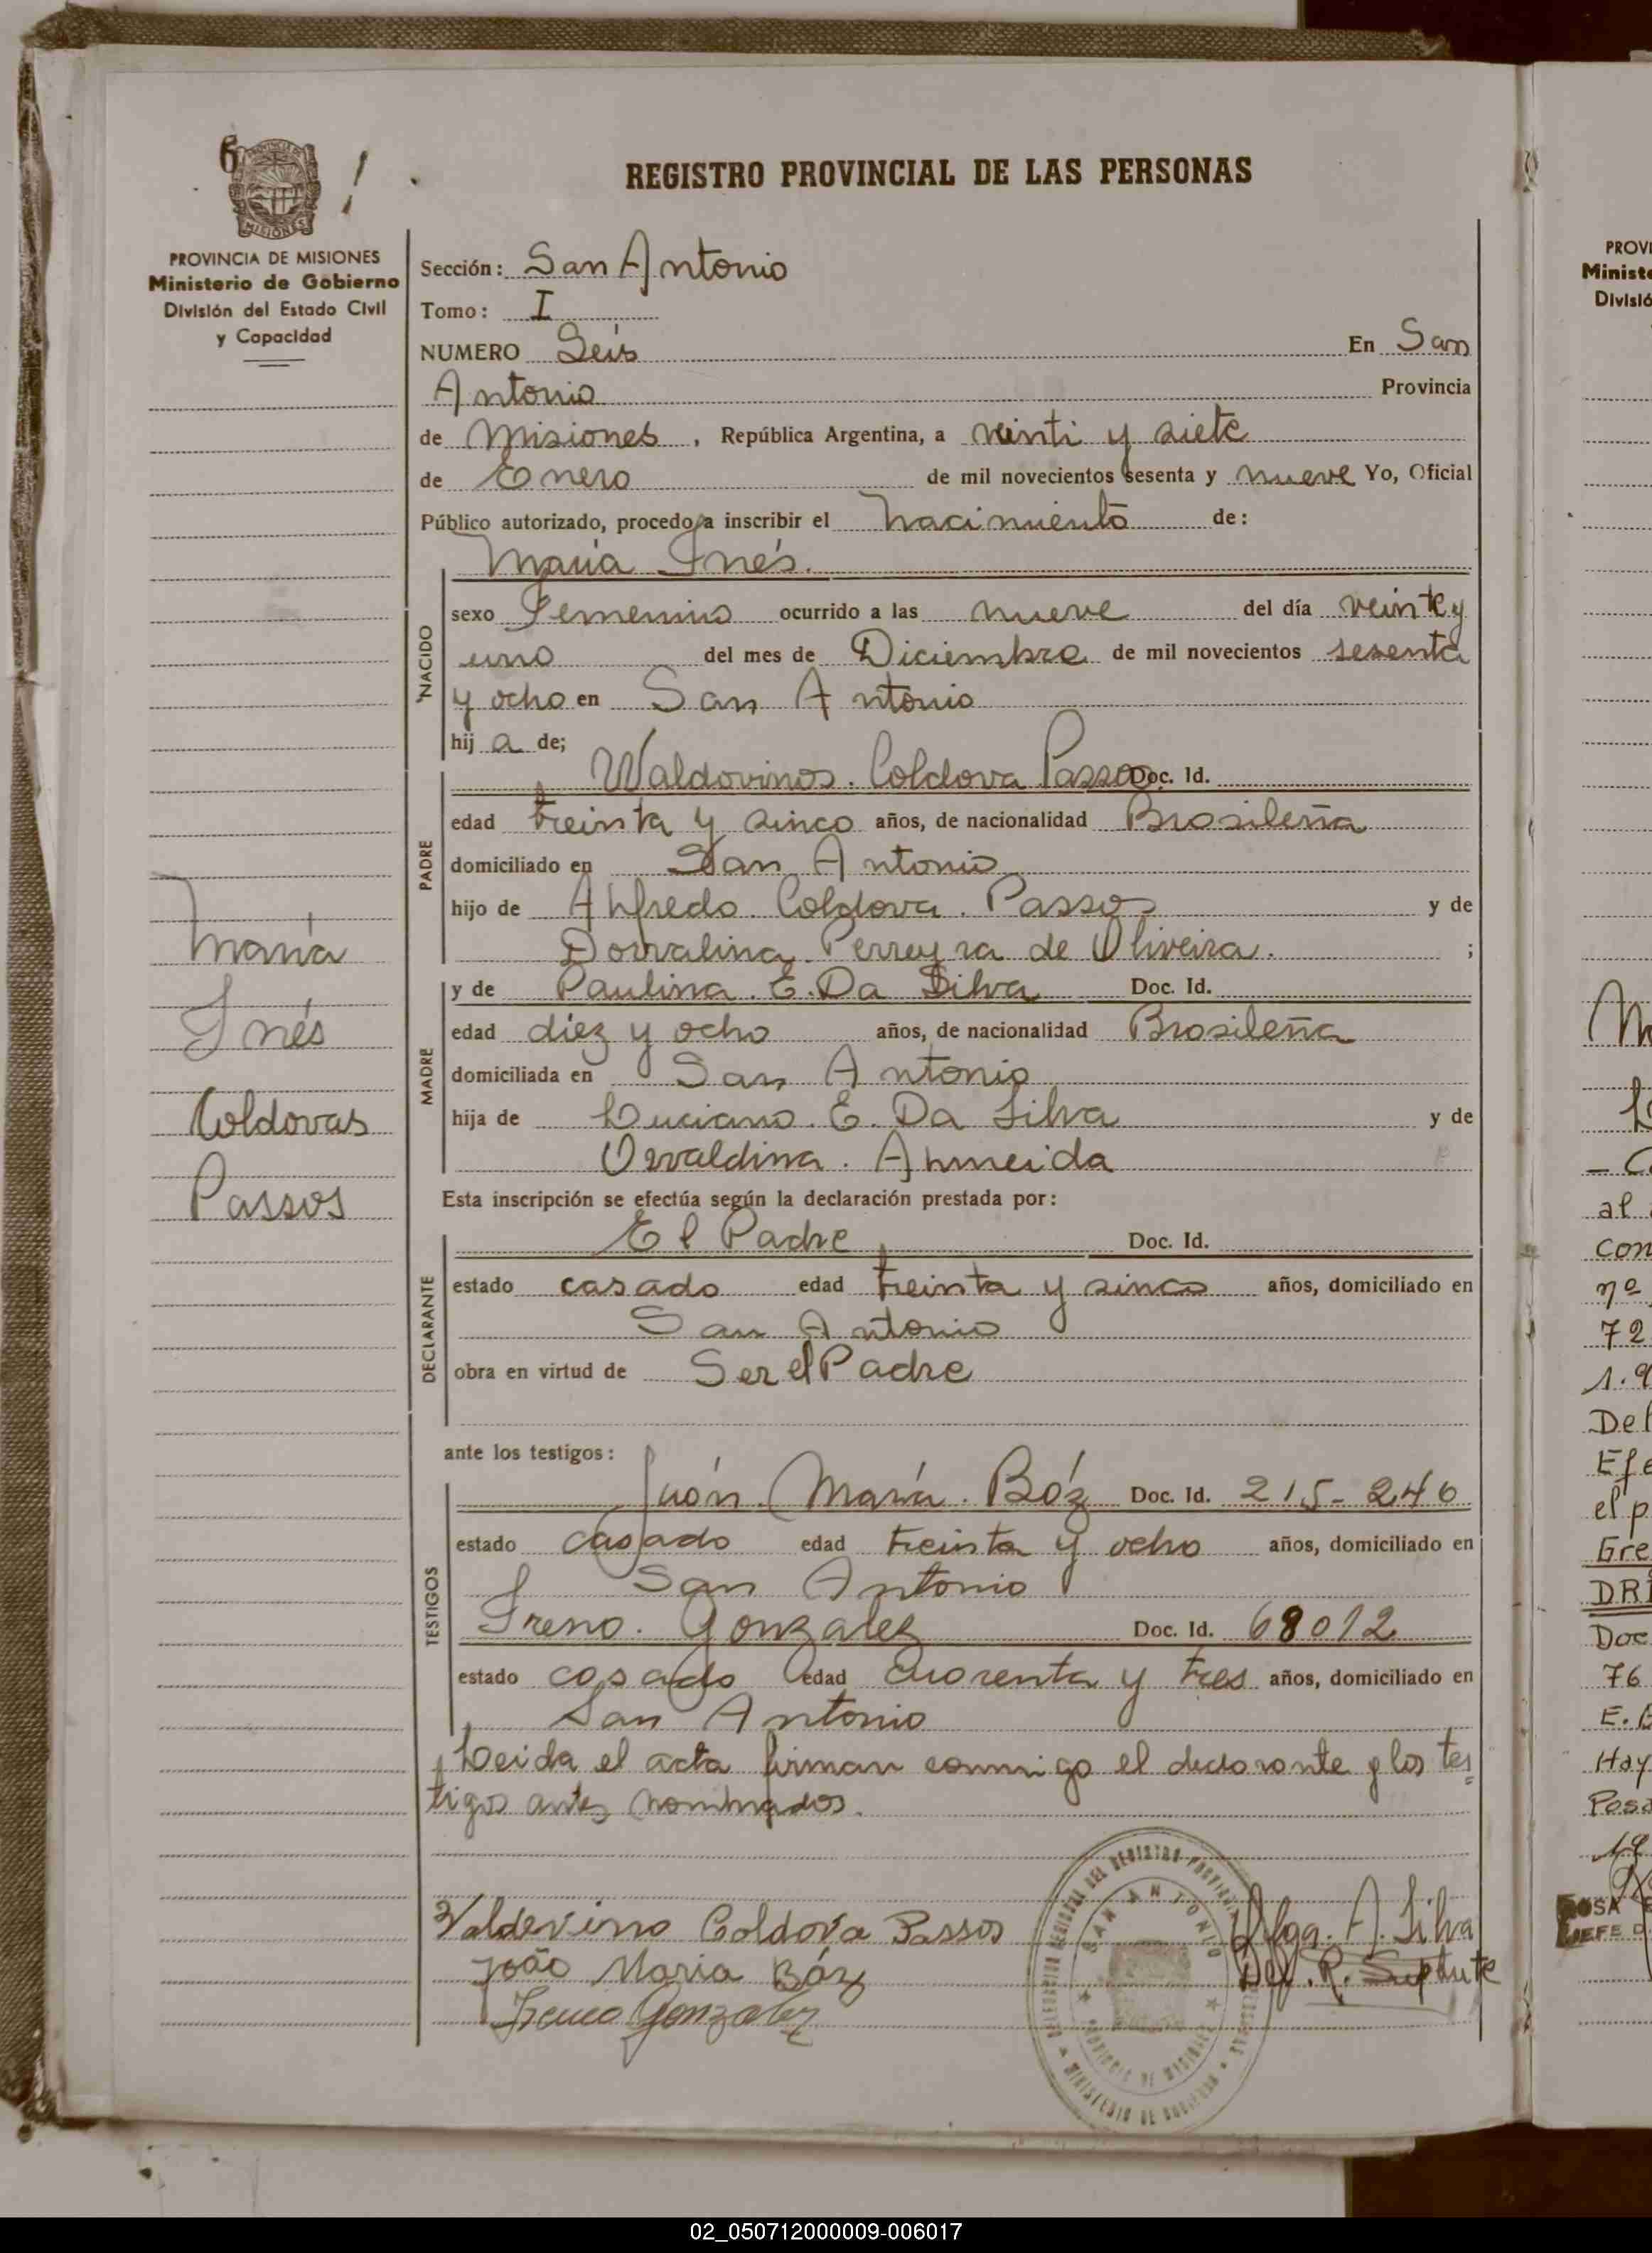 6
PROVINCIA DE MISIONES
Ministerio de Gobierno
División del Estado Civil
y Capacidad
María
Inés
Coldovas
Passos
REGISTRO PROVINCIAL DE LAS PERSONAS
Sección: San Antonio
Tomo: I
NUMERO Seis En San
Antonio Provincia
de Misiones, República Argentina, a veinti y siete
de Enero de mil novecientos sesenta y nueve Yo, Oficial
Público autorizado, procedo a inscribir el nacimiento de:
María Inés.
NACIDO
sexo Femenino ocurrido a las nueve del día veinte y
uno del mes de Diciembre de mil novecientos sesenta
y ocho en San Antonio
hij a de;
PADRE
Waldovinos. Coldova Passos Doc. Id.
edad treinta y sinco años, de nacionalidad Brasileña
domiciliado en San Antonio
hijo de Alfredo. Coldova. Passos y de
Dorvalina. Perreyra de Oliveira. ;
MADRE
y de Paulina. E. Da Silva Doc. Id.
edad diez y ocho años, de nacionalidad Brasileña
domiciliada en San Antonio
hija de Luciano. E. Da Silva y de
Orvaldina. Almeida
Esta inscripción se efectúa según la declaración prestada por:
DECLARANTE
El Padre Doc. Id.
estado casado edad treinta y sinco años, domiciliado en
San Antonio
obra en virtud de Ser el Padre
ante los testigos:
TESTIGOS
Juán. María. Báz Doc. Id. 215-246
estado casado edad treinta y ocho años, domiciliado en
San Antonio
Ireno. Gonzalez Doc. Id. 68012
estado casado edad cuarenta y tres años, domiciliado en
San Antonio
Leida el acta firman conmigo el declarante y los tes
tigos antes nombrados.
Valdevino Coldova Passos
João Maria Báz
Ireneo Gonzalez
Olga. A. Silva
Del. R. Suplute
SAN ANTONIO
PROVINCIA DE MISIONES
MINISTERIO DE GOBIERNO
PROVI
Ministe
Divisió
al
con
nº
72
1.9
Del
Efe
el p
Gre
DRI
Doc
76
Hay
Posa
ROSA
JEFE D
02_050712000009-006017